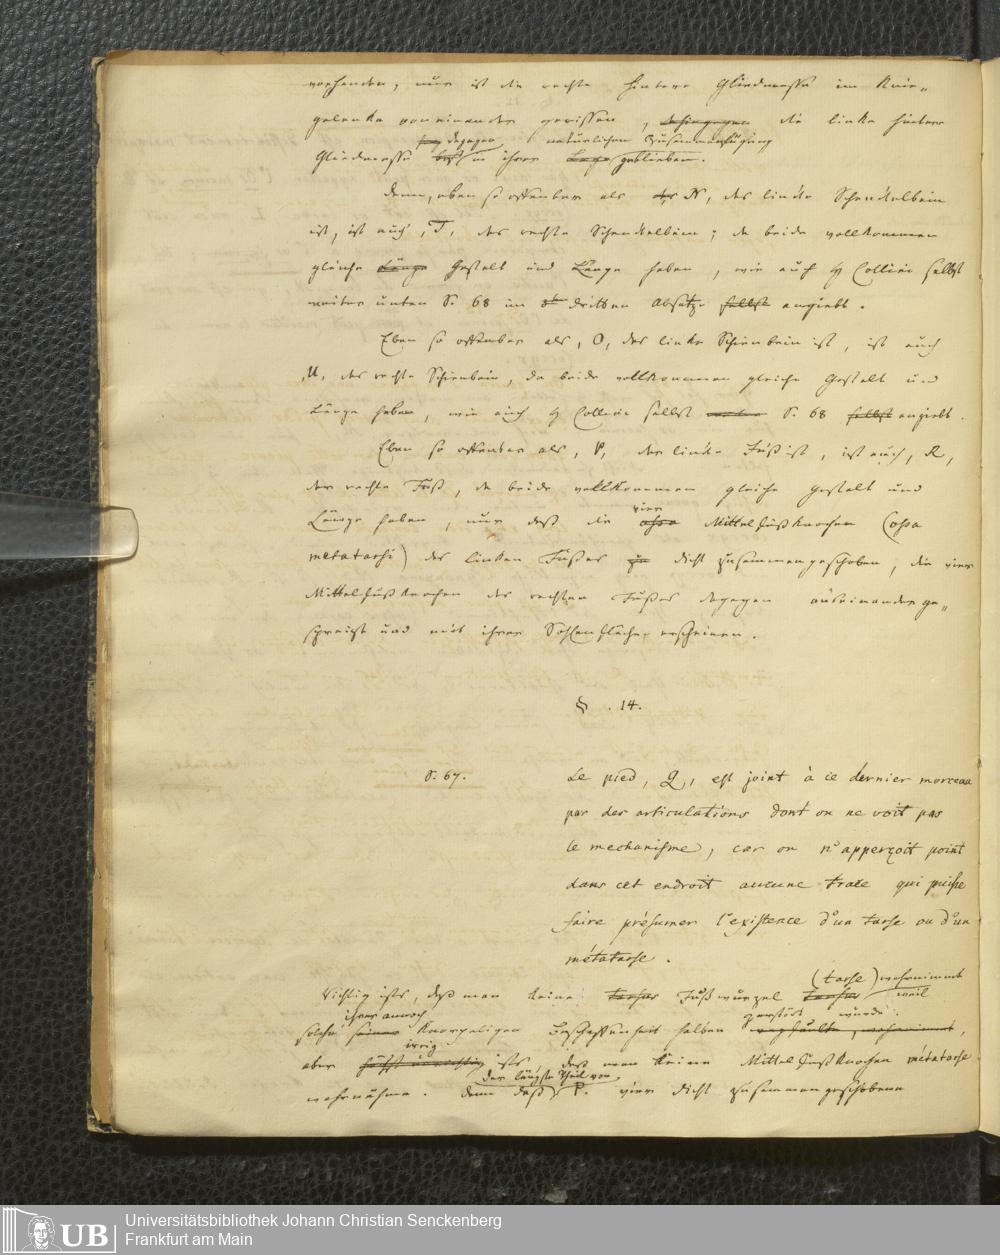 vorhanden, nur ist die rechte hintere Gliedmasse im Knie„
gelenke voneinander gerissen, dahingegen die linke hintere
dagegen natürlichen Zusammenfügung
Gliedmasse in ihrer Lage geblieben.
Denn, eben so offenbar als N, das linke Schenkelbein
ist, ist auch, T, das rechte Schenkelbein; da beide vollkommen
gleiche Länge Gestalt und Länge haben, wie auch H Collini selbst
weiter unten S. 68 im dritten Absatze selbst angiebt.
Eben so offenbar als, O, das linke Schienbein ist, ist auch
U, das rechte Schienbein, da beide vollkommen gleiche Gestalt und
Länge haben, wie auch H Collini selbst S. 68 selbst angiebt.
Eben so offenbar als, P, der linke Fuß ist, ist auch, R,
der rechte Fuß, da beide vollkommen gleiche Gestalt und
vier
Länge haben, nur daß die ossa Mittelfußknochen (ossa
metatarsi) des linken Fußes zu dicht zusammengeschoben, die vier
Mittelfußknochen des rechten Fußes dagegen auseinander ge„
spreizt und mit ihrer Sohlenfläche erscheinen.
§. 14.
S. 67.
Le pied, Q, est joint à ce dernier morceau
par des articulations dont on ne voit pas
le mechanisme, car on n'apperçoit point
dans cet endroit aucune trace qui puisse
faire présumer l'existence d'un tarse ou d'un
métatarse.
(tarse) wahrnimmt
Richtig ists, daß man keine Tarsus Fußwurzel Tarsus weil
ihrer annoch zerstört wurde
solche seiner knorpeligen Beschaffenheit halben wahrnimmt,
irrig
aber höchst unrichtig ists, daß man keine Mittelfußknochen métatarse
der längste Theil von
wahrnähme. Denn daß P. vier dicht zusammengeschobene
Universitätsbibliothek Johann Christian Senckenberg
Frankfurt am Main
UB